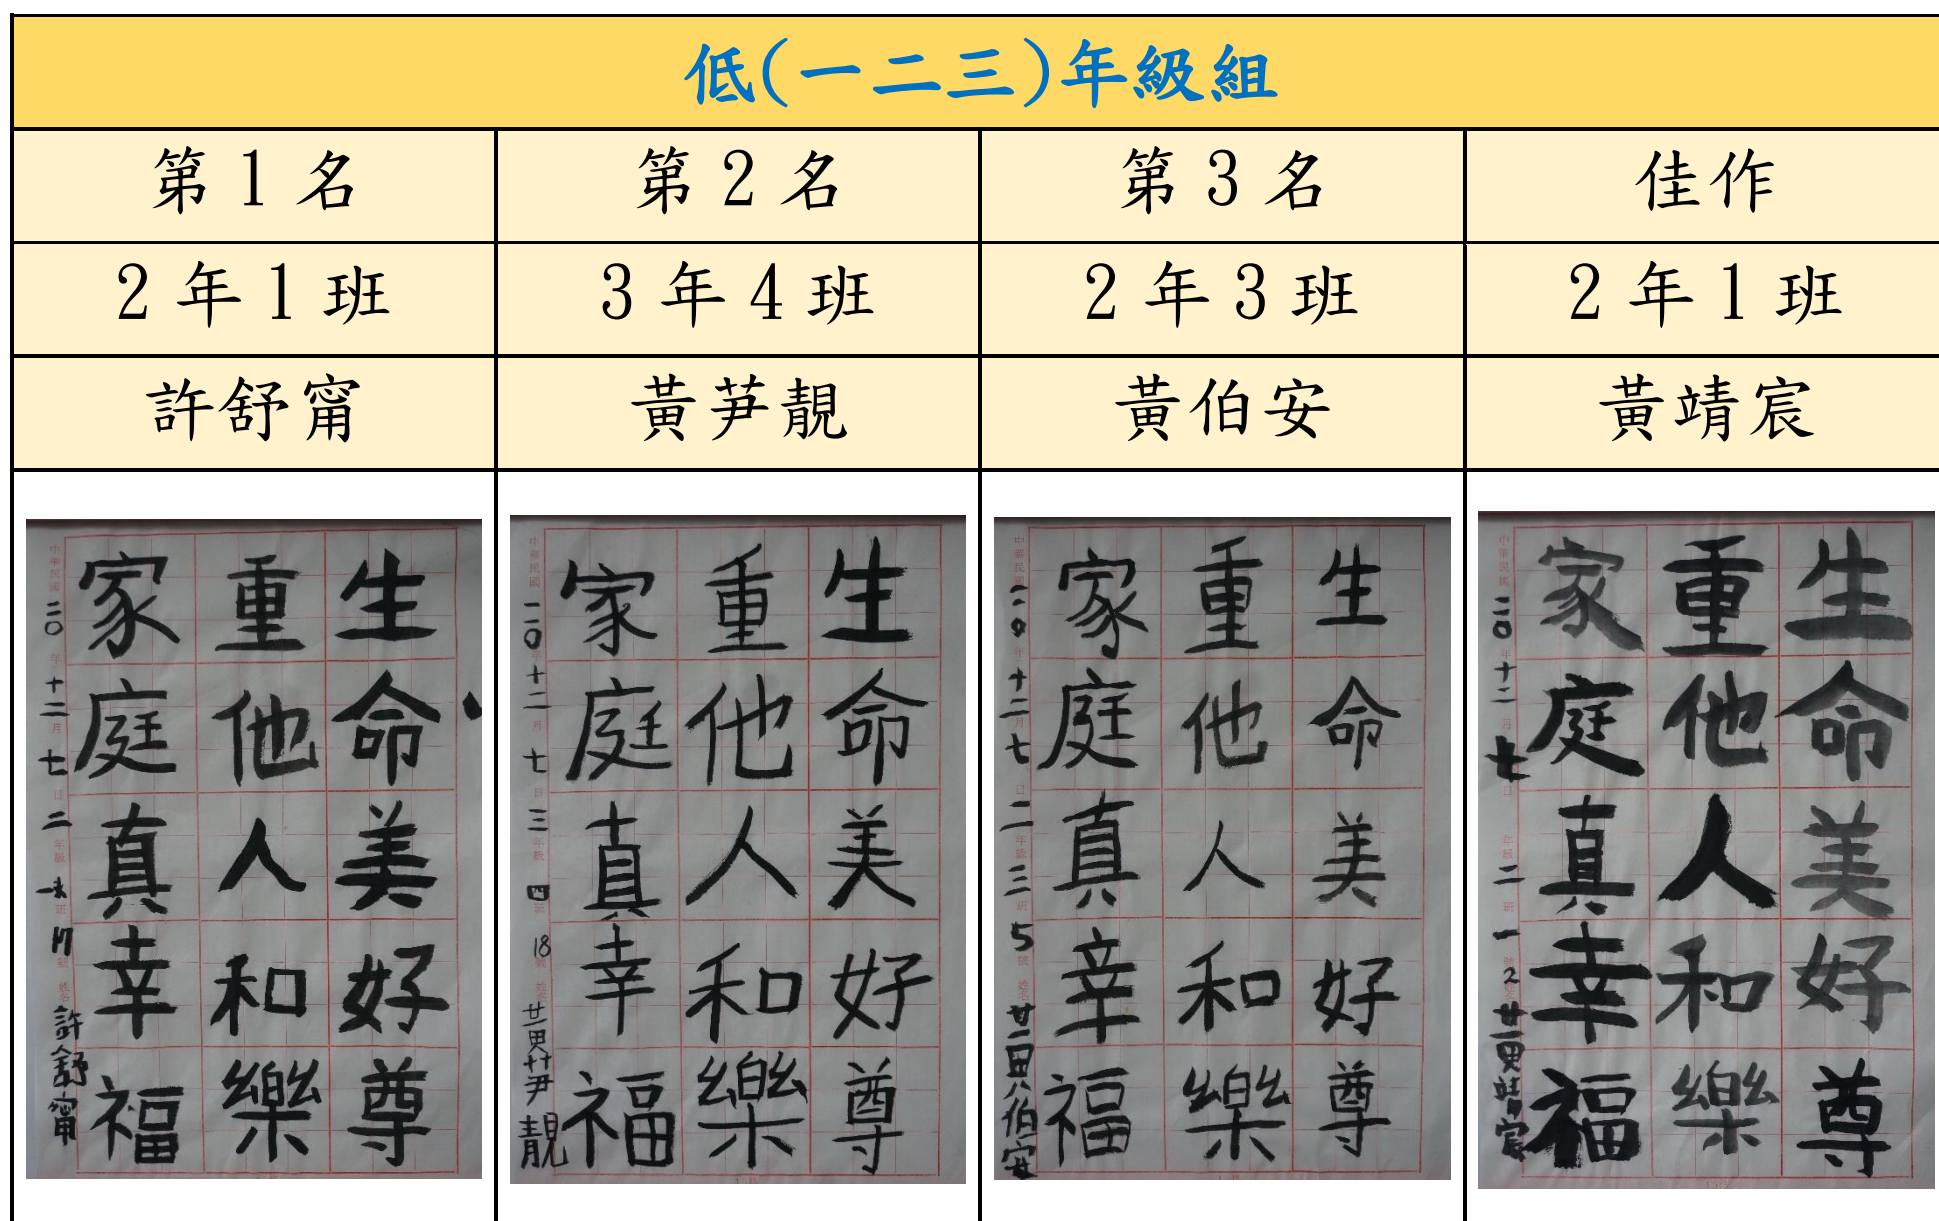 低(一二三)年級組
第1名
第2名
第3名
佳作
2年1班
3年4班
2年3班
2年1班
許舒甯
黃尹靚
黃伯安
黃靖宸
生命美好尊
重他人和樂
家庭真幸福
中華民國一一〇年十二月七日二年級一班17號姓名許舒甯
生命美好尊
重他人和樂
家庭真幸福
中華民國一一〇年十二月七日三年級四班18號姓名黃尹靚
生命美好尊
重他人和樂
家庭真幸福
中華民國一一〇年十二月七日二年級三班5號姓名黃伯安
生命美好尊
重他人和樂
家庭真幸福
中華民國一一〇年十二月七日二年級一班2號姓名黃靖宸